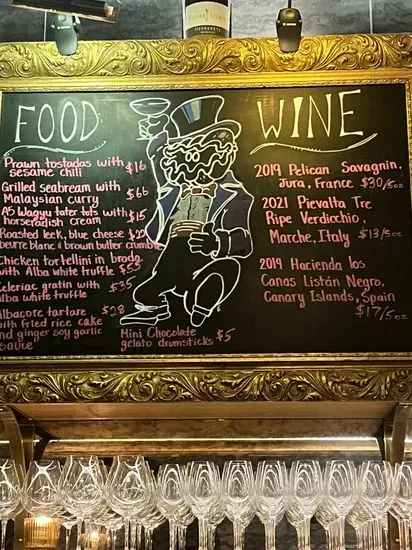 FOOD
Prawn tostadas with
sesame chili $16
Grilled seabream with
Malaysian curry $66
A5 Wagyu tater tots with
horseradish cream $15
Roasted leek, blue cheese
beurre blanc & brown butter crumble
Chicken tortellini in brodo
with Alba white truffle $55
Celeriac gratin with $35
alba white truffle
Albacore tartare $28
with fried rice cake
and ginger soy garlic
sauce
Mini Chocolate
gelato drumsticks $5
WINE
2019 Pelican Savagnin,
Jura, France $30/5oz
2021 Pievalta Tre
Ripe Verdicchio,
Marche, Italy $13/5oz
2019 Hacienda los
Canas Listán Negro,
Canary Islands, Spain
$17/5oz